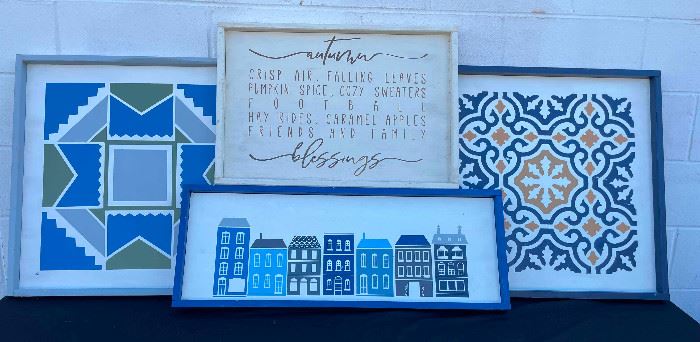 autumn
CRISP AIR, FALLING LEAVES
PUMPKIN SPICE, COZY SWEATERS
FOOTBALL
HAY RIDES, CARAMEL APPLES
FRIENDS AND FAMILY
blessings